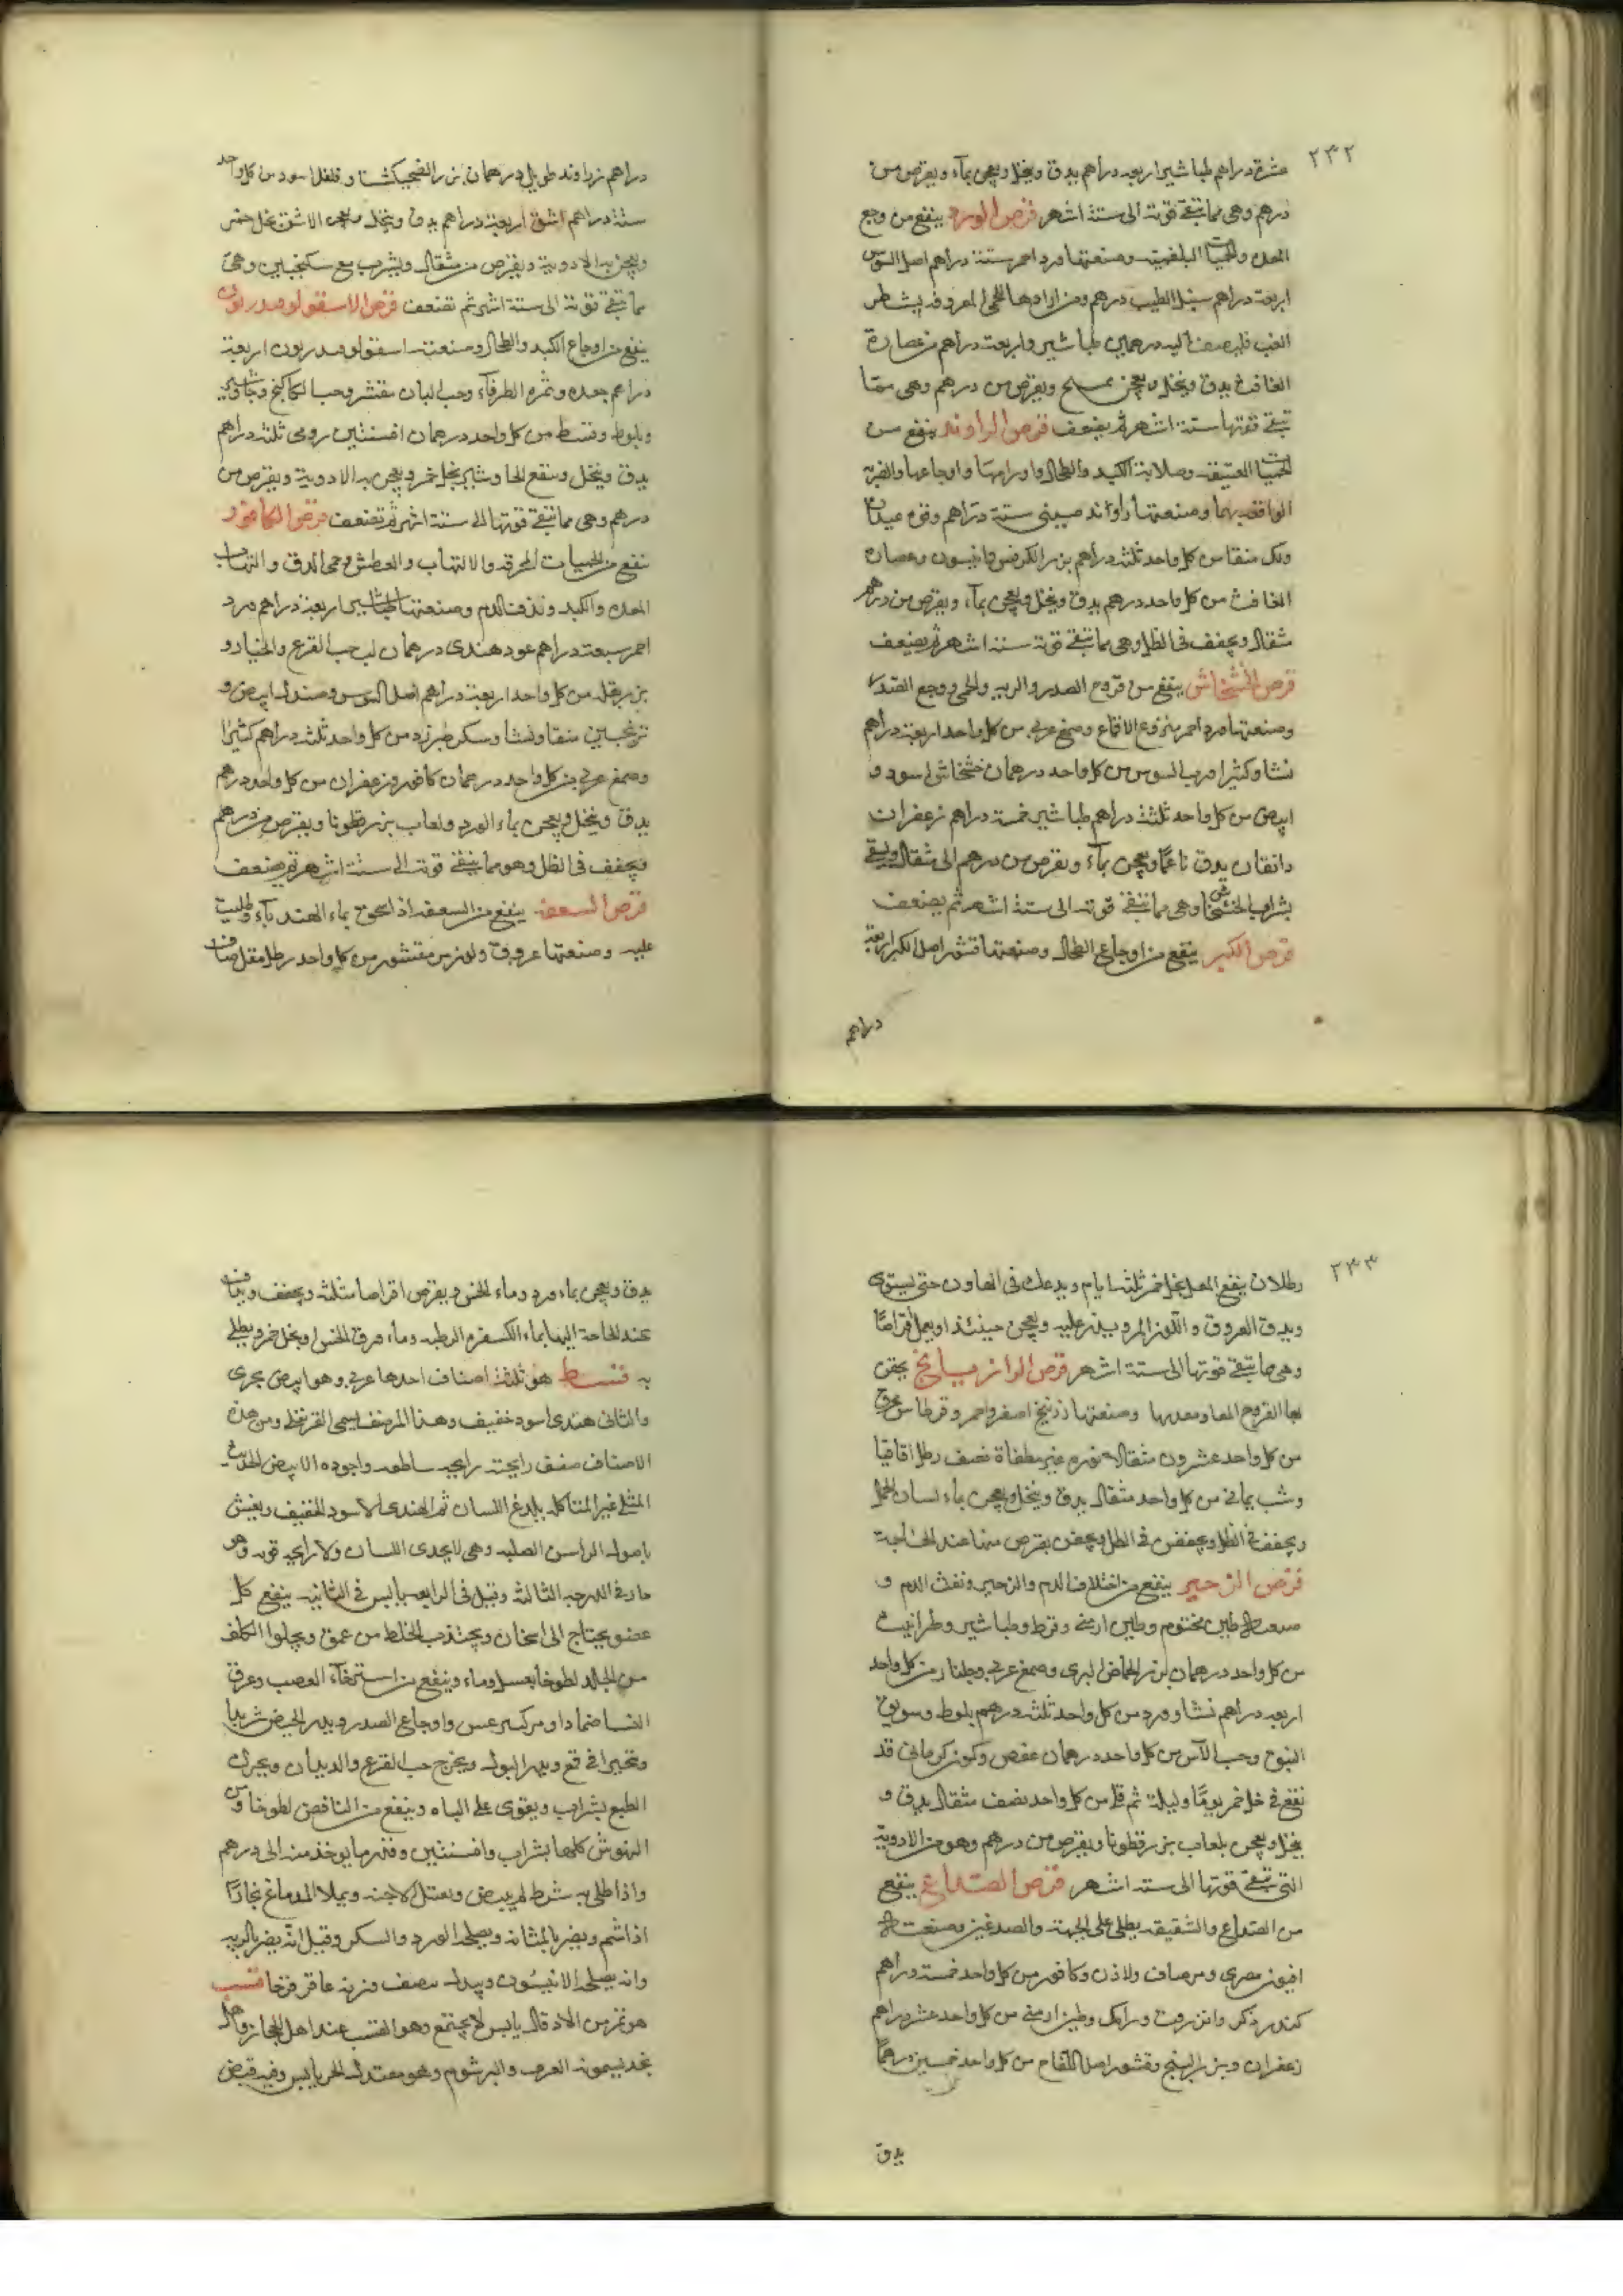 ٢٣٢
عشرة دراهم طباشير اربعه دراهم يدق وينخل ويعجن بمآء ويقرص من
درهم وهى مما تبقى قوته الى ستة اشهر قرص الورد ينفع من وجع
المعده والحميات البلغميه وصنعتها ورد احمر ستة دراهم اصل السوس
اربعة دراهم سنبل الطيب درهم ومن ارادها للحمى المعروفه بشطر
الغب فليضف اليه درهمين طباشير واربعة دراهم من عصارة
الغافث يدق وينخل ويعجن ويقرص من درهم وهى مما
تبقى قوتها ستة اشهر ثم يضعف قرص الراوند ينفع من
الحميات العتيقه وصلابة الكبد والطحال واورامها واوجاعها والضربه
الواقعه بهما وصنعتها راوند صينى ستة دراهم وفوه عيدان
ولك منقا من كل واحد ثلثه دراهم بزر الكرفس وانيسون وعصاره
الغافث من كل واحد درهم يدق وينخل ويعجن بمآء ويقرص من درهم
مثقال ويجفف فى الظل وهى مما تبقى قوته ستة اشهر ثم يضعف
قرص الخشخاش ينفع من قروح الصدر والريه والحمى ووجع الصدر
وصنعتها ورد احمر منزوع الاقماع وصمغ عربى من كل واحد اربعة دراهم
نشا وكثيرا ورب السوس من كل واحد درهمان خشخاش اسود و
ابيض من كل واحد ثلثة دراهم طباشير خمسة دراهم زعفران
دانقان يدق ناعمًا ويعجن بمآء ويقرص من درهم الى مثقال ويسقى
بشراب الخشخاش وهى مما تبقى قوته الى ستة اشهر ثم يضعف
قرص الكبر ينفع من اوجاع الطحال وصنعتها قشر اصل الكبر اربعة
دراهم
دراهم زراوند طويل درهمان بزر الفنجنكشت وفلفل اسود من كل واحد
ستة دراهم اشق اربعة دراهم يدق وينخل ويعجن الاشق بخل خمر
ويعجن به الادوية ويقرص من مثقال ويشرب مع سكنجبين وهى
مما تبقى قوته الى ستة اشهر ثم تضعف قرص الاسقولوقندريون
ينفع من اوجاع الكبد والطحال وصنعته اسقولوقندريون اربعة
دراهم جعده وثمره الطرفآء وحب البان مقشر وحب الكاكنج وجاوشير
وبلوط وقسط من كل واحد درهمان افسنتين رومى ثلثه دراهم
يدق وينخل وينقع الجاوشير بخل خمر ويعجن به الادوية ويقرص من
درهم وهى مما تبقى قوتها الى ستة اشهر ثم تضعف قرص الكافور
ينفع من الحميات المحرقه والالتهاب والعطش وحمى الدق والتهاب
المعده والكبد ونزف الدم وصنعتها طباشير اربعة دراهم ورد
احمر سبعة دراهم عود هندى درهمان لب حب القرع والخيار و
بزر بقله من كل واحد اربعة دراهم اصل السوس وصندل ابيض و
ترنجبين منقا ونشا وسكر طبرزد من كل واحد ثلثه دراهم كثيرا
وصمغ عربى من كل واحد درهمان كافور وزعفران من كل واحد درهم
يدق وينخل ويعجن بماء الورد ولعاب بزر قطونا ويقرص من درهم
ويجفف فى الظل وهو مما تبقى قوته الى ستة اشهر ثم يضعف
قرص السعفه ينفع من السعفه اذا سحق بماء الهندبآء وطليت
عليه وصنعتها عروق ولوز مر مقشور من كل واحد رطل مقل صاف
٢٣٣
رطلان ينقع المقل بخل خمر ثلثه ايام ويدعك فى الهاون حتى يستوى
ويدق العروق واللوز المر ويذر عليه ويعجن حينئذ او يعمل اقراصًا
وهى مما تبقى قوتها الى ستة اشهر قرص الزرانيخ يحقن
بها القروح المعا ومعدبها وصنعتها زرنيخ اصفر واحمر وقرطاس محرق
من كل واحد عشرون مثقالا نوره غير مطفاة نصف رطل اقاقيا
وشب يمانى من كل واحد مثقال يدق وينخل ويعجن بماء لسان الحمل
ويجفف فى الظل ويجفف فى الظل ويحقن بقرص منها عند الحاجة
قرص الزحير ينفع من اختلاف الدم والزحير ونفث الدم و
صنعته طين مختوم وطين ارمنى وقرط وطباشير وطراثيث
من كل واحد درهمان بزر الحماض البرى وصمغ عربى وجلنار من كل واحد
اربعه دراهم نشا وورد من كل واحد ثلثة درهم بلوط وسويق
النبق وحب الآس من كل واحد درهمان عفص وكمون كرمانى قد
نقع فى خل خمر يومًا وليلة ثم قلى من كل واحد نصف مثقال يدق و
ينخل ويعجن بلعاب بزر قطونا ويقرص من درهم وهو من الادوية
التى تبقى قوتها الى ستة اشهر قرص الصداع ينفع
من الصداع والشقيقه يطلى على الجبهة والصدغين وصنعته
افيون مصرى ومر صاف ولاذن وكافور من كل واحد خمسة دراهم
كندر ذكر وانزروت ورامك وطين ارمنى من كل واحد عشره دراهم
زعفران وبزر البنج وقشور اصل اللفاح من كل واحد خمسين درهمًا
يدق
يدق ويعجن بماء ورد وماء الخس ويقرص اقراصا مثلثه ويجفف ويداف
عند الحاجة اليها بماء الكسفره الرطبه وماء ورق الخس او بخل خمر ويطلى
به قسط هو ثلثة اصناف احدها عربى وهو ابيض بحرى
والثانى هندى اسود خفيف وهذا الصنف يسمى القرنفلى ومن هذه
الاصناف صنف رايحته رايحه ساطعه واجوده الابيض الحديث
الممتلى غير المتاكل يلدغ اللسان ثم الهندى الاسود الخفيف ويغش
باصول الراسن الصلبه وهى لا يحذى اللسان ولا رايحه قويه وهو
حار فى الدرجه الثالثه وقيل فى الرابعه يابس فى الثانيه ينفع كل
عضو يحتاج الى اسخان ويجتذب الخلط من عمق ويجلوا الكلف
من الجلد لطوخا بعسل وماء وينفع من استرخآء العصب وعرق
النسا ضمادا ومن كسر عس واوجاع الصدر ويدر الحيض شربا
وتحيرا فى قمع ويدر البول ويخرج حب القرع والديدان ويحرك
الطبع بشراب ويقوى على الباه وينفع من النافض لطوخا ومن
النهوش كلها بشراب وافسنتين وقدر ما يوخذ منه الى درهم
واذا طلى به شرط لم يبيض ويقتل الاجنه ويملا الدماغ بخارًا
اذا شم ويضر بالمثانه ويصلحه الورد والسكر وقيل انه يضر بالريه
وانه يصلحه الانيسون وبدله نصف وزنه عاقر قرحا قسب
هو تمر من الادقال يابس لا يجتمع وهو القسب عند اهل الحجاز واهل
نجد يسمونه العرب والبرشوم وهو معتدل الحر يابس وفيه قبض